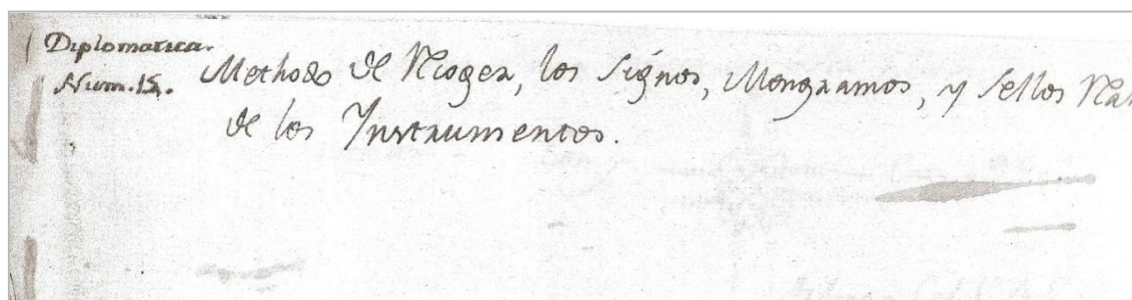 Diplomatica.
Num. 15. Methodo de Recoger, los Signos, Mongramos, y Sellos
de los Ynstrumentos.